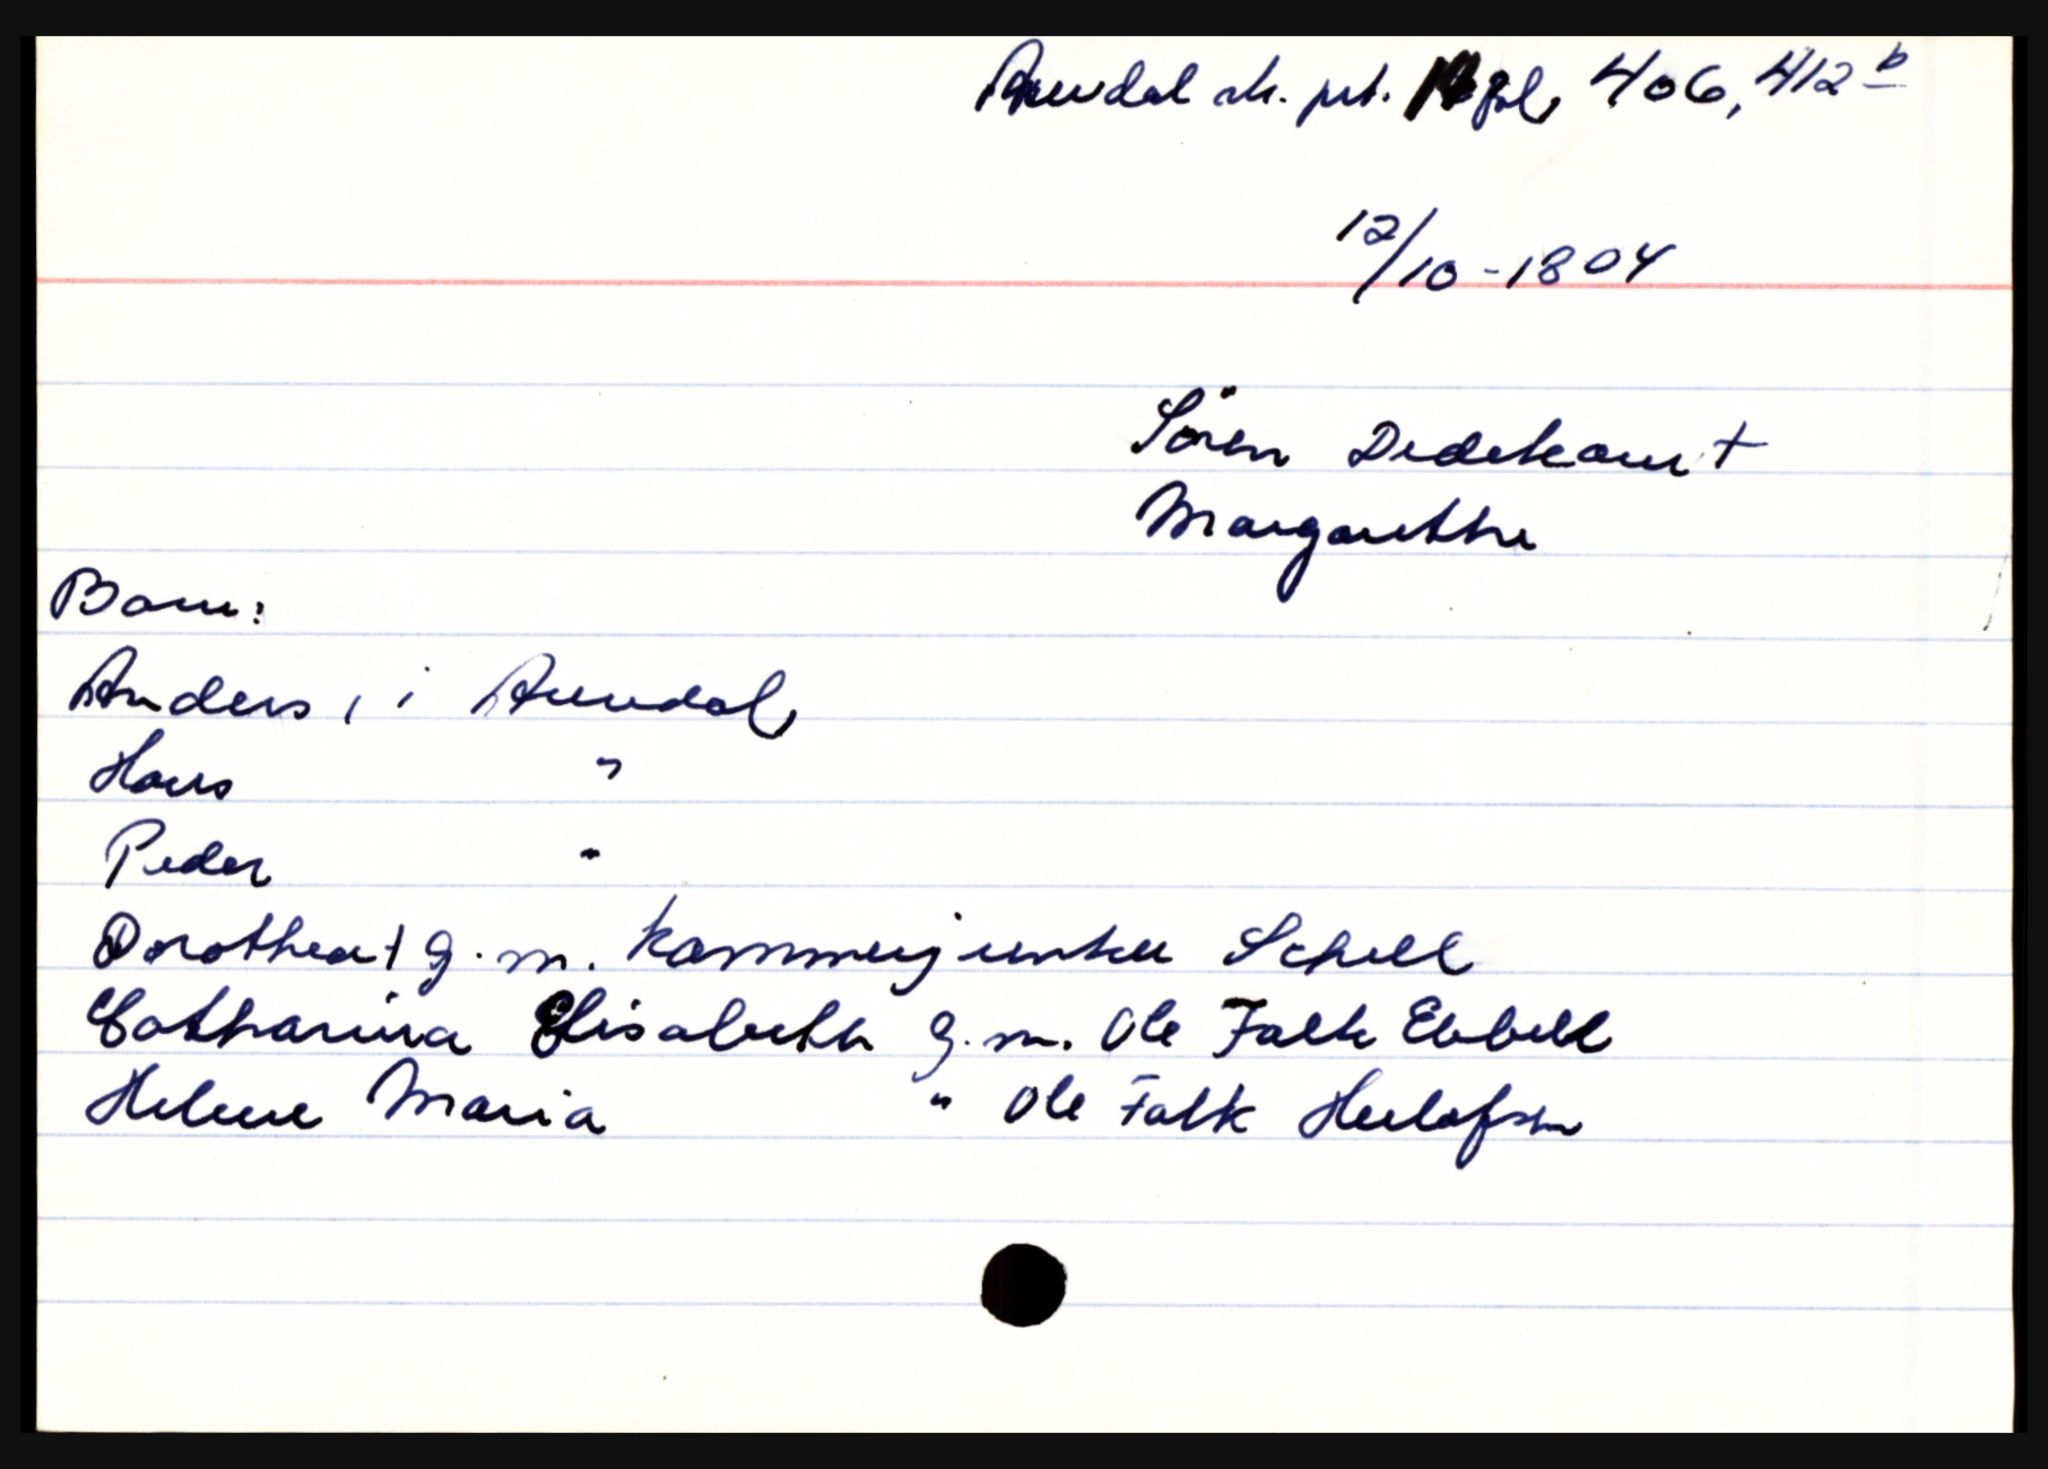 Arendal sk. prt. fol. 406, 412 b
12/10-1804
Søren Dedekam +
Margarethe
Barn:
Anders, i Arendal,
Hans "
Peder "
Dorothea + g. m. kammerjunker Schell
Catharina Elisabeth g. m. Ole Falk Ebbell
Helene Maria " Ole Falk Herlofsen